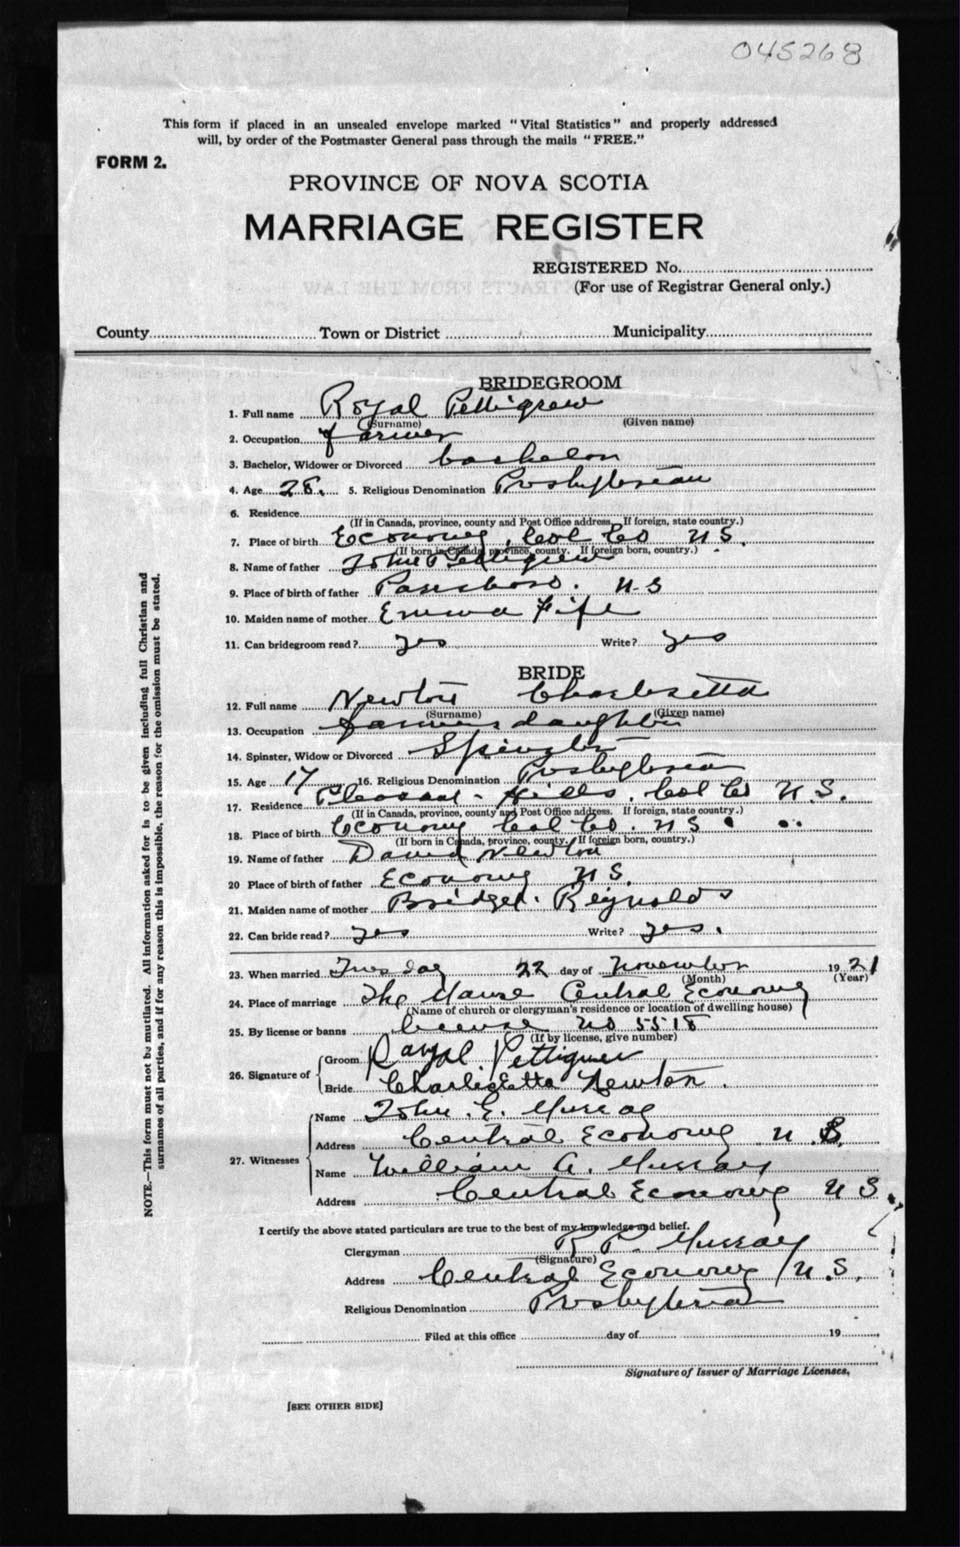 045268
This form if placed in an unsealed envelope marked "Vital Statistics" and properly addressed
will, by order of the Postmaster General pass through the mails "FREE."
FORM 2.
PROVINCE OF NOVA SCOTIA
MARRIAGE REGISTER
REGISTERED No.
(For use of Registrar General only.)
County Town or District Municipality
BRIDEGROOM
1. Full name Royal Pettigrew
(Surname) (Given name)
2. Occupation farmer
3. Bachelor, Widower or Divorced bachelor
4. Age 28. 5. Religious Denomination Presbyterian
6. Residence
(If in Canada, province, county and Post Office address. If foreign, state country.)
7. Place of birth Economy, Col Co N S.
(If born in Canada, province, county. If foreign born, country.)
8. Name of father John Pettigrew
9. Place of birth of father Parrsboro. N-S
10. Maiden name of mother Emma Fife
11. Can bridegroom read? yes Write? yes
BRIDE
12. Full name Newton Charlesetta
(Surname) (Given name)
13. Occupation farmers daughter
14. Spinster, Widow or Divorced Spinster
15. Age 17 16. Religious Denomination Presbyterian
17. Residence Pleasant-Hills, Col Co N.S.
(If in Canada, province, county and Post Office address. If foreign, state country.)
18. Place of birth Economy Col Co. N S
(If born in Canada, province, county. If foreign born, country.)
19. Name of father David Newton
20 Place of birth of father Economy N S.
21. Maiden name of mother Bridget. Reynolds
22. Can bride read? yes Write? yes.
23. When married Tuesday 22 day of November 1921
(Month) (Year)
24. Place of marriage The Manse Central Economy
(Name of church or clergyman's residence or location of dwelling house)
25. By license or banns license no 5518
(If by license, give number)
26. Signature of Groom Royal Pettigrew
Bride Newton.
27. Witnesses Name John. E. Murray
Address Central Economy N S.
Name William A. Murray
Address Central Economy N S.
I certify the above stated particulars are true to the best of my knowledge and belief.
Clergyman R P. Murray
(Signature)
Address Central Economy N.S.
Religious Denomination Presbyterian
Filed at this office day of 19
Signature of Issuer of Marriage Licenses.
[SEE OTHER SIDE]
NOTE.—This form must not be mutilated. All information asked for is to be given including full Christian and
surnames of all parties, and if for any reason this is impossible, the reason for the omission must be stated.